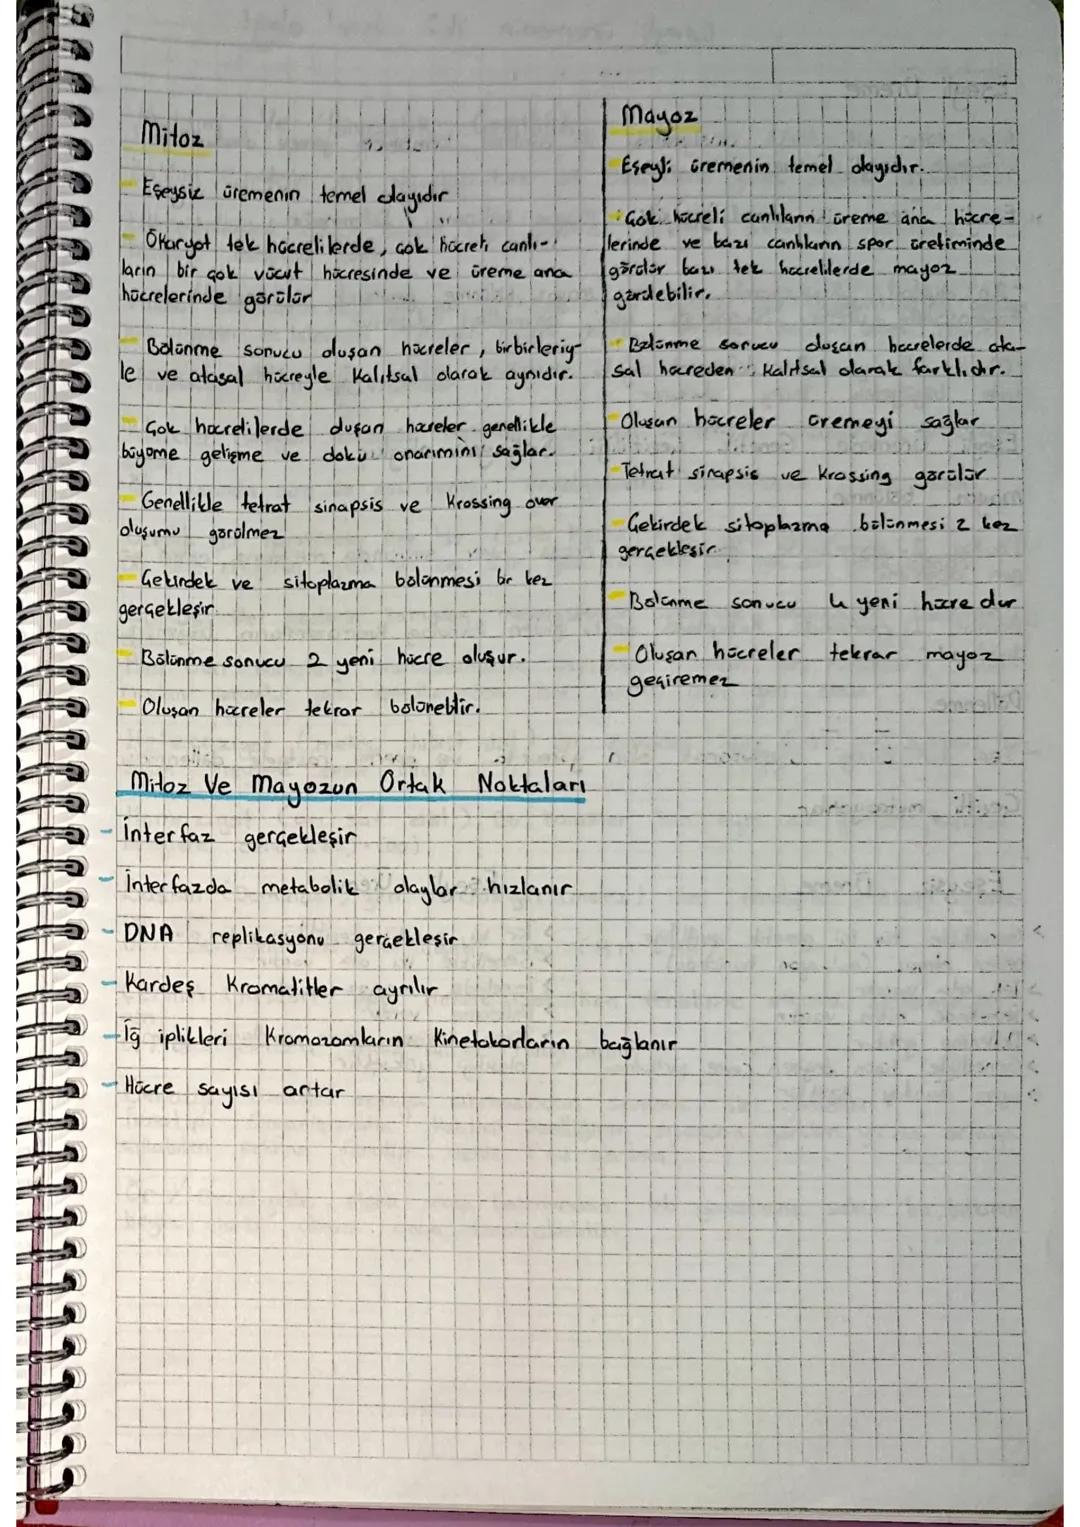 Mitoz
- Eşeysiz üremenin temel olayıdır
- Ökaryot tek hücrelilerde, çok hücreli canlı-
ların bir çok vücut hücresinde ve üreme ana
hücrelerinde görülür
- Bölünme sonucu oluşan hücreler, birbirleriy-
le ve atasal hücreyle kalıtsal olarak aynıdır.
- Çok hücrelilerde oluşan hücreler genellikle
büyüme gelişme ve doku onarımını sağlar.
- Genellikle tetrat sinapsis ve Krossing over
oluşumu görülmez
- Çekirdek ve sitoplazma bölünmesi bir kez
gerçekleşir.
- Bölünme sonucu 2 yeni hücre oluşur.
- Oluşan hücreler tekrar bölünebilir.
Mayoz
- Eşeyli üremenin temel olayıdır.
- Çok hücreli canlıların üreme ana hücre-
lerinde ve bazı canlıların spor üretiminde
görülür bazı tek hücrelilerde mayoz
görülebilir.
- Bölünme sonucu oluşan hücrelerde ata-
sal hücreden kalıtsal olarak farklıdır.
- Oluşan hücreler üremeyi sağlar
- Tetrat sinapsis ve Krossing görülür
- Çekirdek sitoplazma bölünmesi 2 kez
gerçekleşir.
- Bölünme sonucu 4 yeni hücre dur
- Oluşan hücreler tekrar mayoz
geçiremez
Mitoz Ve Mayozun Ortak Noktaları
- İnterfaz gerçekleşir
- İnterfazda metabolik olaylar hızlanır
- DNA replikasyonu gerçekleşir
- Kardeş Kromatitler ayrılır
- İğ iplikleri Kromozomların Kinetokorların bağlanır
- Hücre sayısı artar